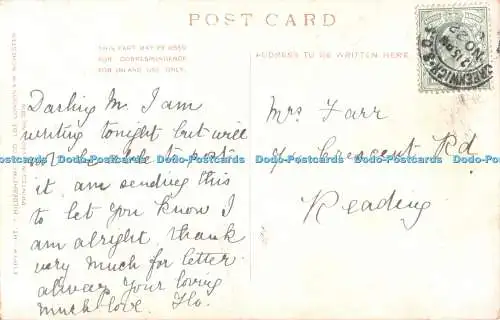 POST CARD
THIS PART MAY BE USED
FOR CORRESPONDENCE
FOR INLAND USE ONLY.
ADDRESS TO BE WRITTEN HERE
GREENWICH S.O.
NO 22
Darling M. I am
writing tonight but will
not be able to post
it, am sending this
to let you know I
am alright, thank
very much for letter
always your loving
much love. Flo.
Mrs Farr
Crescent Rd
Reading
Dodo-Postcards Dodo-Postcards Dodo-Postcards Dodo-Postcards Dodo-Postcards